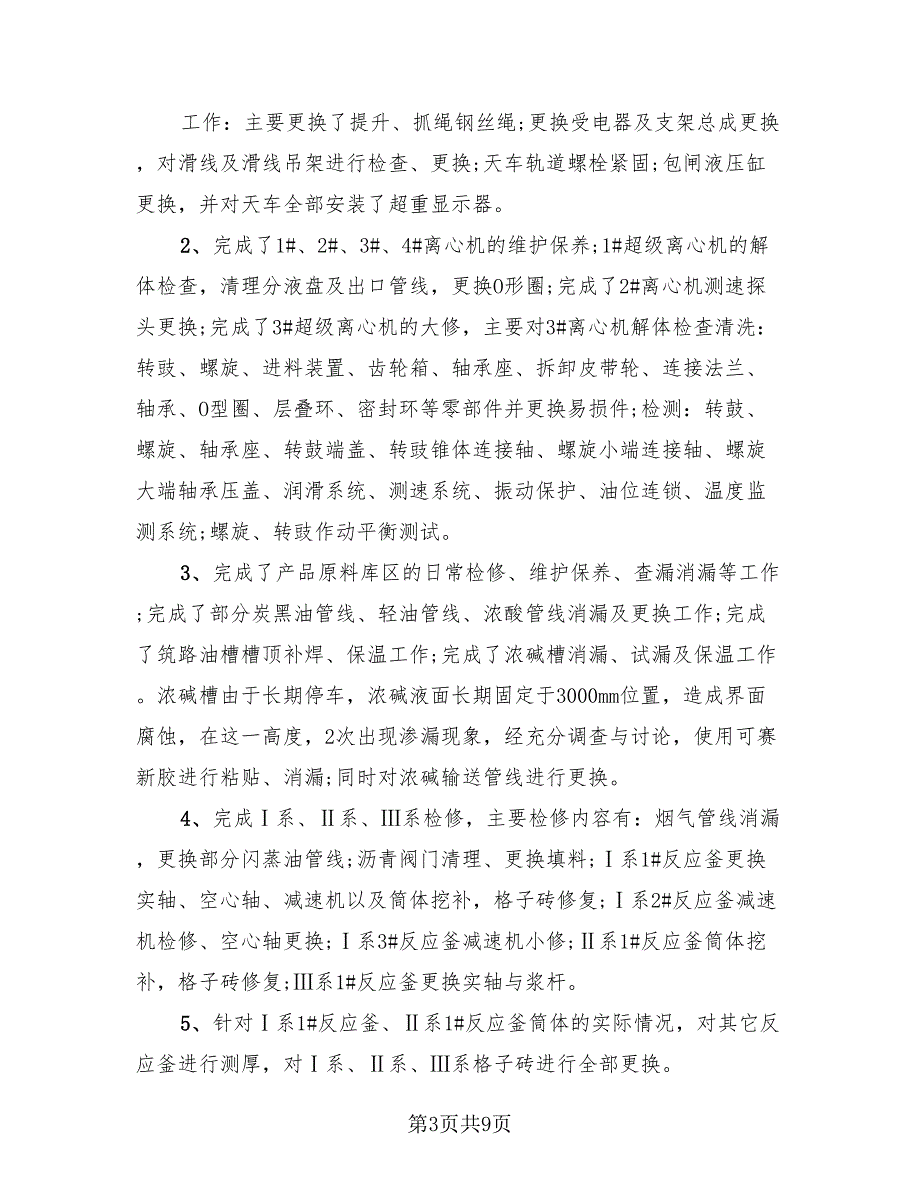 工作：主要更换了提升、抓绳钢丝绳;更换受电器及支架总成更换
，对滑线及滑线吊架进行检查、更换;天车轨道螺栓紧固;包闸液压缸
更换，并对天车全部安装了超重显示器。
2、完成了1#、2#、3#、4#离心机的维护保养;1#超级离心机的解
体检查，清理分液盘及出口管线，更换O形圈;完成了2#离心机测速探
头更换;完成了3#超级离心机的大修，主要对3#离心机解体检查清洗：
转鼓、螺旋、进料装置、齿轮箱、轴承座、拆卸皮带轮、连接法兰、
轴承、O型圈、层叠环、密封环等零部件并更换易损件;检测：转鼓、
螺旋、轴承座、转鼓端盖、转鼓锥体连接轴、螺旋小端连接轴、螺旋
大端轴承压盖、润滑系统、测速系统、振动保护、油位连锁、温度监
测系统;螺旋、转鼓作动平衡测试。
3、完成了产品原料库区的日常检修、维护保养、查漏消漏等工作
;完成了部分炭黑油管线、轻油管线、浓酸管线消漏及更换工作;完成
了筑路油槽槽顶补焊、保温工作;完成了浓碱槽消漏、试漏及保温工作
。浓碱槽由于长期停车，浓碱液面长期固定于3000mm位置，造成界面
腐蚀，在这一高度，2次出现渗漏现象，经充分调查与讨论，使用可赛
新胶进行粘贴、消漏;同时对浓碱输送管线进行更换。
4、完成Ⅰ系、Ⅱ系、Ⅲ系检修，主要检修内容有：烟气管线消漏
，更换部分闪蒸油管线;沥青阀门清理、更换填料;Ⅰ系1#反应釜更换
实轴、空心轴、减速机以及筒体挖补，格子砖修复;Ⅰ系2#反应釜减速
机检修、空心轴更换;Ⅰ系3#反应釜减速机小修;Ⅱ系1#反应釜筒体挖
补，格子砖修复;Ⅲ系1#反应釜更换实轴与浆杆。
5、针对Ⅰ系1#反应釜、Ⅱ系1#反应釜筒体的实际情况，对其它反
应釜进行测厚，对Ⅰ系、Ⅱ系、Ⅲ系格子砖进行全部更换。
第3页共9页